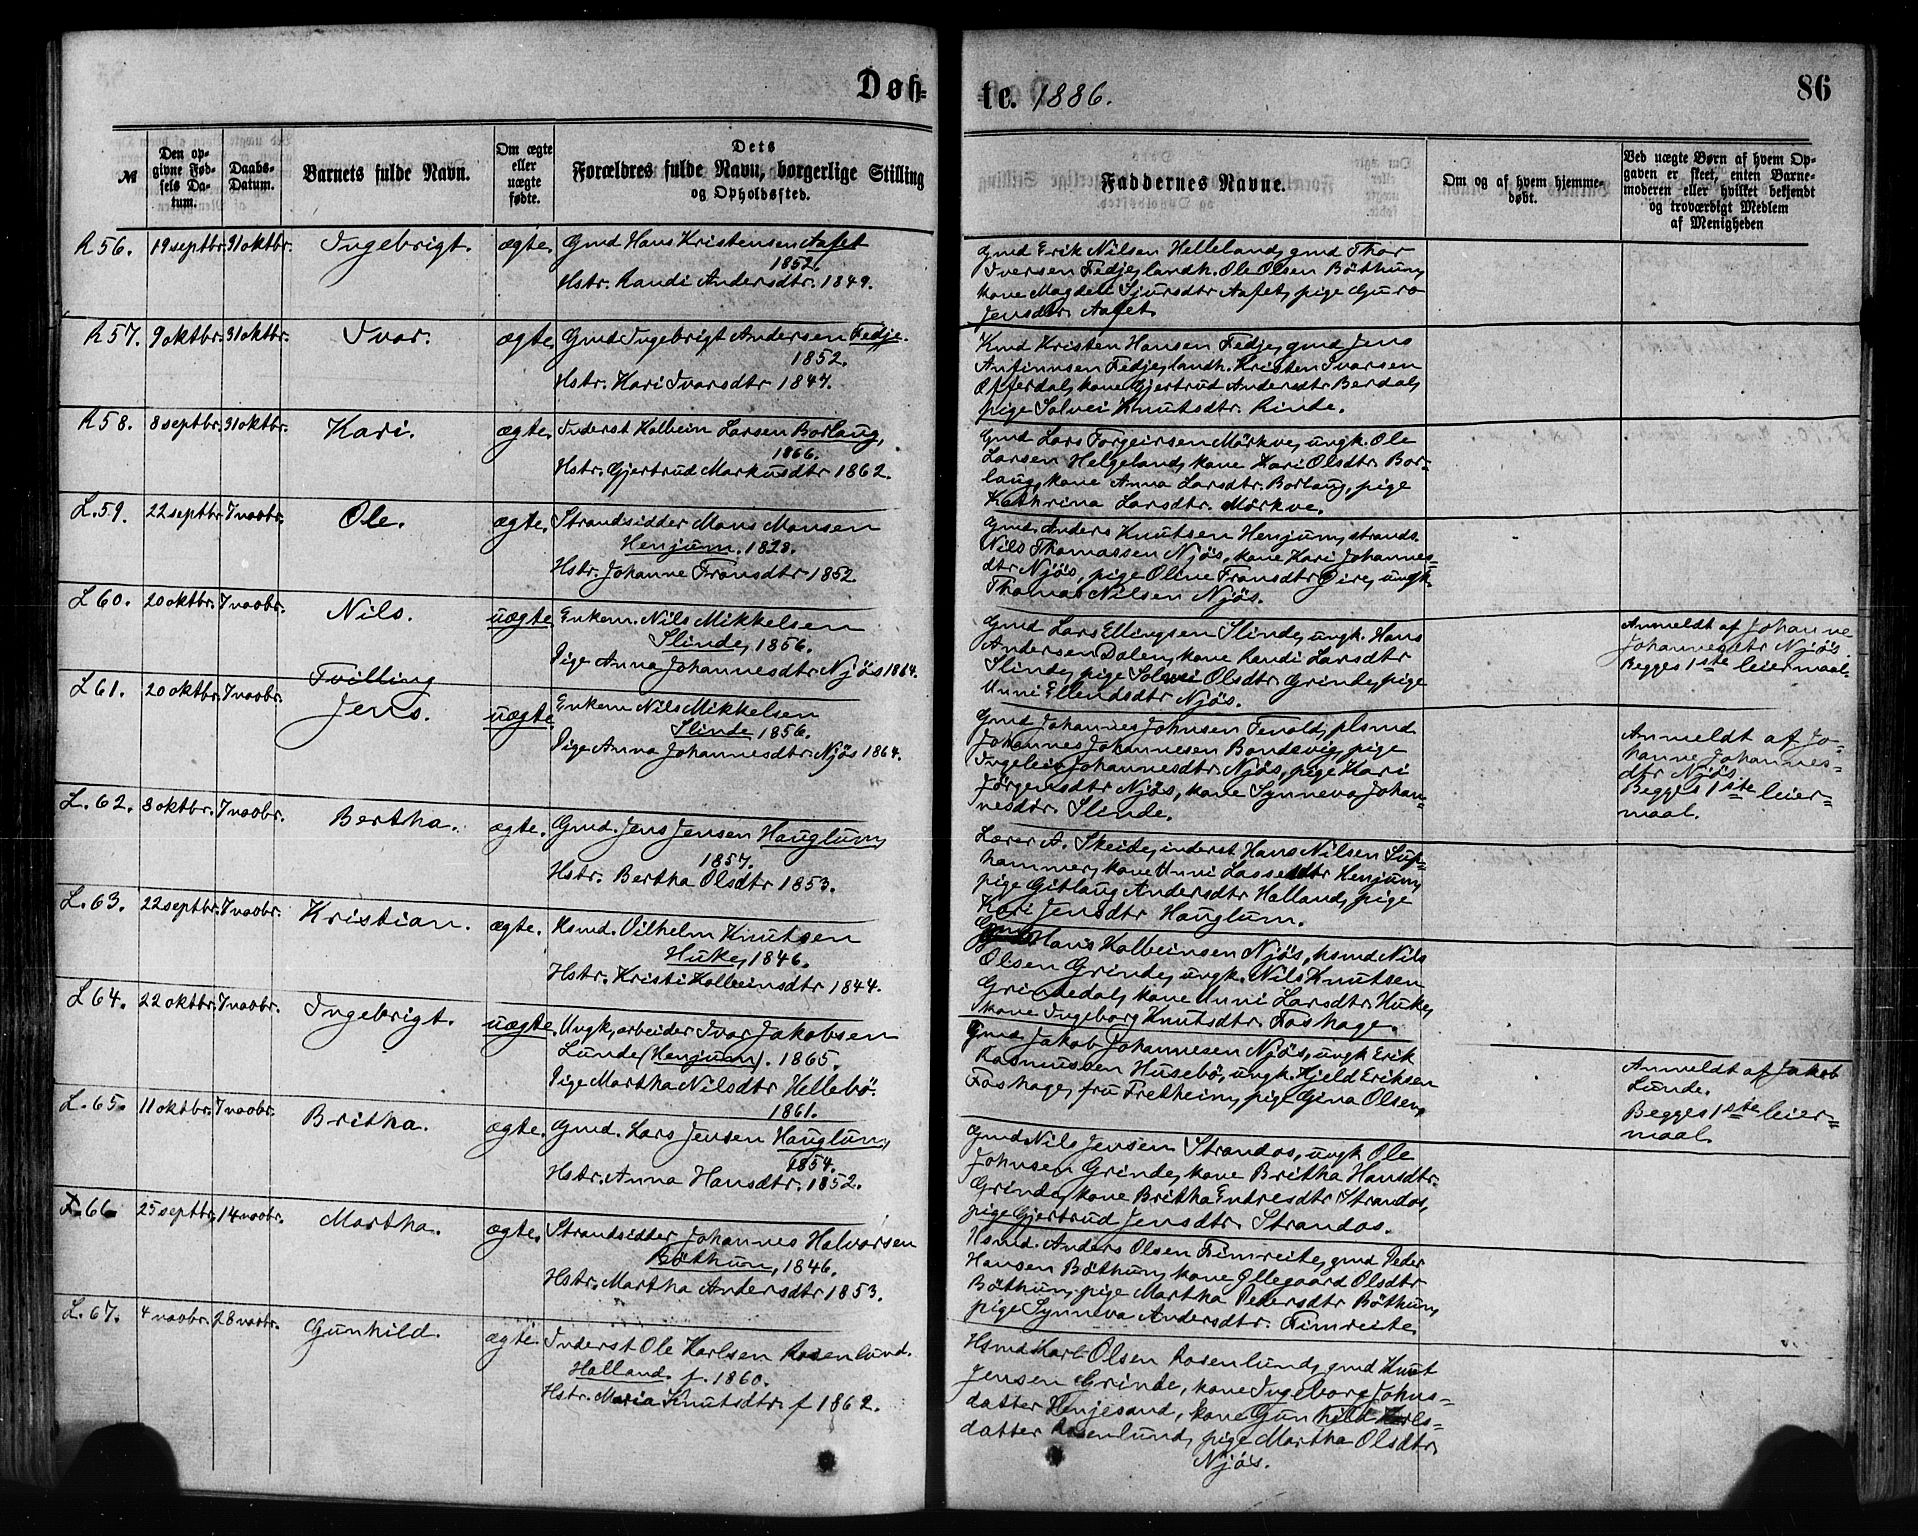 Døb-
te. 1886.
86
№
Den op-
givne Fød-
sels Da-
tum.
Daabs-
Datum.
Barnets fulde Navn.
Om ægte
eller
uægte
fødte.
Dets
Forældres fulde Navn, borgerlige Stilling
og Opholdssted.
Faddernes Navne.
Om og af hvem hjemme-
døbt.
Ved uægte Børn af hvem Op-
gaven er skeet, enten Barne-
moderen eller hvilket bekjendt
og troværdigt Medlem
af Menigheden
R56. 19 septbr. 31 oktbr. Ingebrigt. ægte. Gmd Hans Kristensen Aafet
1852.
Hstr. Randi Andersdtr. 1849.
Gmd Erik Nilsen Helleland, gmd Thor
Iversen Fedje, landh. Ole Olsen Böthun,
kone Magdeli Sjursdtr Aafet, pige Guro
Jensdtr. Aafet.
R57. 9 oktbr. 31 oktbr. Ivar. ægte. Gmd Ingebrigt Andersen Fedje.
1852.
Hstr. Kari Ivarsdtr 1847.
Kmd Kristen Hansen Fedje, gmd Jens
Anfinnsen Fedje, landh. Kristen Ivarsen
Offerdal, kone Gjertrud Andersdtr Berdal,
pige Solvei Knutsdtr. Rinde.
R58. 8 septbr. 31 oktbr. Kari. ægte. Inderst Kolbein Larsen Borlaug,
1866.
Hstr. Gjertrud Markusdtr 1862.
Gmd Lars Torgeirsen Mörkve, ungk. Ole
Larsen Helgeland, kone Kari Olsdtr. Bor-
laug, kone Anna Larsdtr. Borlaug, pige
Kathrina Larsdtr. Mörkve.
L.59. 22 septbr. 7 novbr. Ole. ægte. Strandsidder Mons Monsen
Henjum. 1828.
Hstr. Johanne Fransdtr 1852
Gmd. Anders Knutsen Henjum, strands.
Nils Thomassen Njøs, kone Kari Johannes-
dtr Njøs, pige Oline Fransdtr Eire, ungk.
Thomas Nilsen Njøs.
L60. 20 oktbr. 7 novbr. Nils. uægte. Enkem. Nils Mikkelsen
Slinde, 1856.
Pige Anna Johannesdtr Njøs 1864.
Gmd Lars Ellingsen Slinde, ungk. Hans
Andersen Dalen, kone Randi Larsdtr
Slinde, pige Solvei Olsdtr Grinde, pige
Unni Ellendsdtr Njøs.
Anmeldt af Johanne
Johannesdtr Njøs.
Begges 1ste leiermaal.
Tvilling
L61. 20 oktbr. 7 novbr. Jens. uægte. Enkem Nils Mikkelsen
Slinde 1856.
Pige Anna Johannesdtr. Njøs 1864.
Gmd Johannes Johnsen Fenold, plsmd
Johannes Johannesen Bondevig, pige
Ingeleiv Johannesdtr Njøs, pige Kari
Jörgensdtr Njøs, kone Synneva Johan-
nesdtr. Slinde.
Anmeldt af Jo-
hanne Johannes-
dtr Njøs.
Begges 1ste leier-
maal.
L.62. 8 oktbr. 7 novbr. Bertha. ægte. Gmd. Jens Jensen Hauglum,
1857.
Hstr. Bertha Olsdtr 1853.
Lærer A. Skeide, inderst Hans Nilsen Sup-
hammer, kone Unni Lassesdtr Henjum,
pige Gitlaug Andersdtr Halland, pige
Kari Jensdtr Hauglum.
L.63. 22 septbr. 7 novbr. Kristian. ægte. Hsmd. Vilhelm Knutsen
Huke, 1846.
Hstr. Kristi Kolbeinsdtr 1844.
Gmd Hans Kolbeinsen Njøs, hsmd Nils
Olsen Grinde, ungk. Nils Knutsen
Grindedal, kone Unni Larsdtr. Huke,
kone Ingeborg Knutsdtr. Foshage.
L64. 22 oktbr. 7 novbr. Ingebrigt. uægte. Ungk, arbeider Ivar Jakobsen
Lunde (Henjum). 1865.
Pige Martha Nilsdtr Hellebö.
1861.
Gmd Jakob Johannesen Njøs, ungk Erik
Rasmussen Husebö, ungk. Kjeld Eriksen
Foshage, fru Fretheim, pige Gina Olsen,
Anmeldt af Jakob
Lunde.
Begges 1ste leier-
maal.
L.65. 11 oktbr. 7 novbr. Britha. ægte. Gmd. Lars Jensen Hauglum,
1854.
Hstr. Anna Hansdtr. 1852.
Gmd Nils Jensen Strandos, ungk Ole
Johnsen Grinde, kone Britha Hansdtr.
Grinde, kone Britha Endresdtr Strandos,
pige Gjertrud Jensdtr. Strandos.
L.66. 25 septbr. 14 novbr. Martha. ægte. Strandsidder Johannes Halvorsen
Böthun, 1846.
Hstr. Martha Andersdtr 1853.
Hsmd. Anders Olsen Fimreite, gmd Peder
Hansen Böthun, kone Ollegaard Olsdtr
Böthun, pige Martha Pedersdtr Böthun,
pige Synneva Andersdtr. Fimreite.
L.67. 4 novbr. 28 novbr. Gunhild. ægte. Inderst Ole Karlsen Rosenlund.
Halland. f. 1860.
Hstr. Maria Knutsdtr. f 1862.
Hsmd Karl Olsen Rosenlund, gmd Knut
Jensen Grinde, kone Ingeborg Johns-
datter Henjesand, kone Gunhild Karls-
datter Rosenlund, pige Martha Olsdtr,
Njøs.